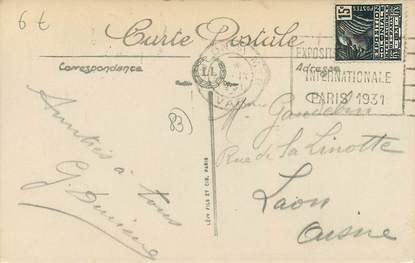 6 €
Carte Postale
Correspondance
Adresse
15c
POSTES
EXPOSITION
INTERNATIONALE
PARIS 1931
LL
VAR
83
Amitiés à tous
G.
LÉVY FILS ET CIE, PARIS
Rue de la Linotte
Laon
Aisne